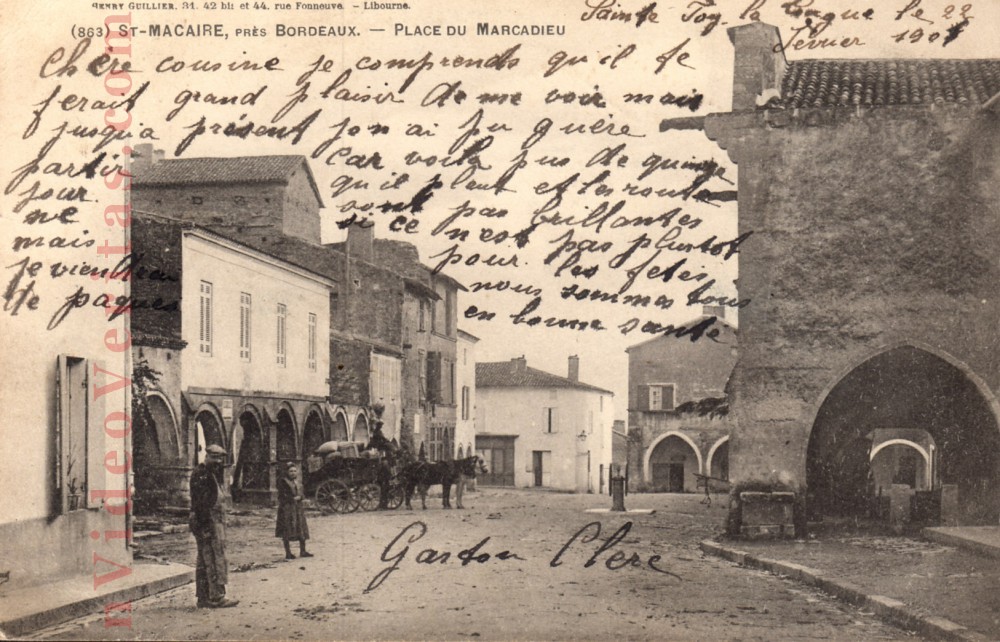 HENRY GUILLIER. 31. 42 bis et 44. rue Fonneuve. - Libourne.
(863) ST-MACAIRE, PRÈS BORDEAUX. — PLACE DU MARCADIEU
Sainte Foy la longue le 22
février 1907
Chère cousine je comprends qu'il te
ferait grand plaisir de me voir mais
jusqu'a présent jon ai pu guère
partir car voila pus de quinze
jour qu'il pleut et les route
ne sont pas brillantes
mais si ce n'est pas plustot
je viendrai pour les fêtes
de paques nous sommes tous
en bonne santé
Gaston Clère
www.nVideoVeritas.com